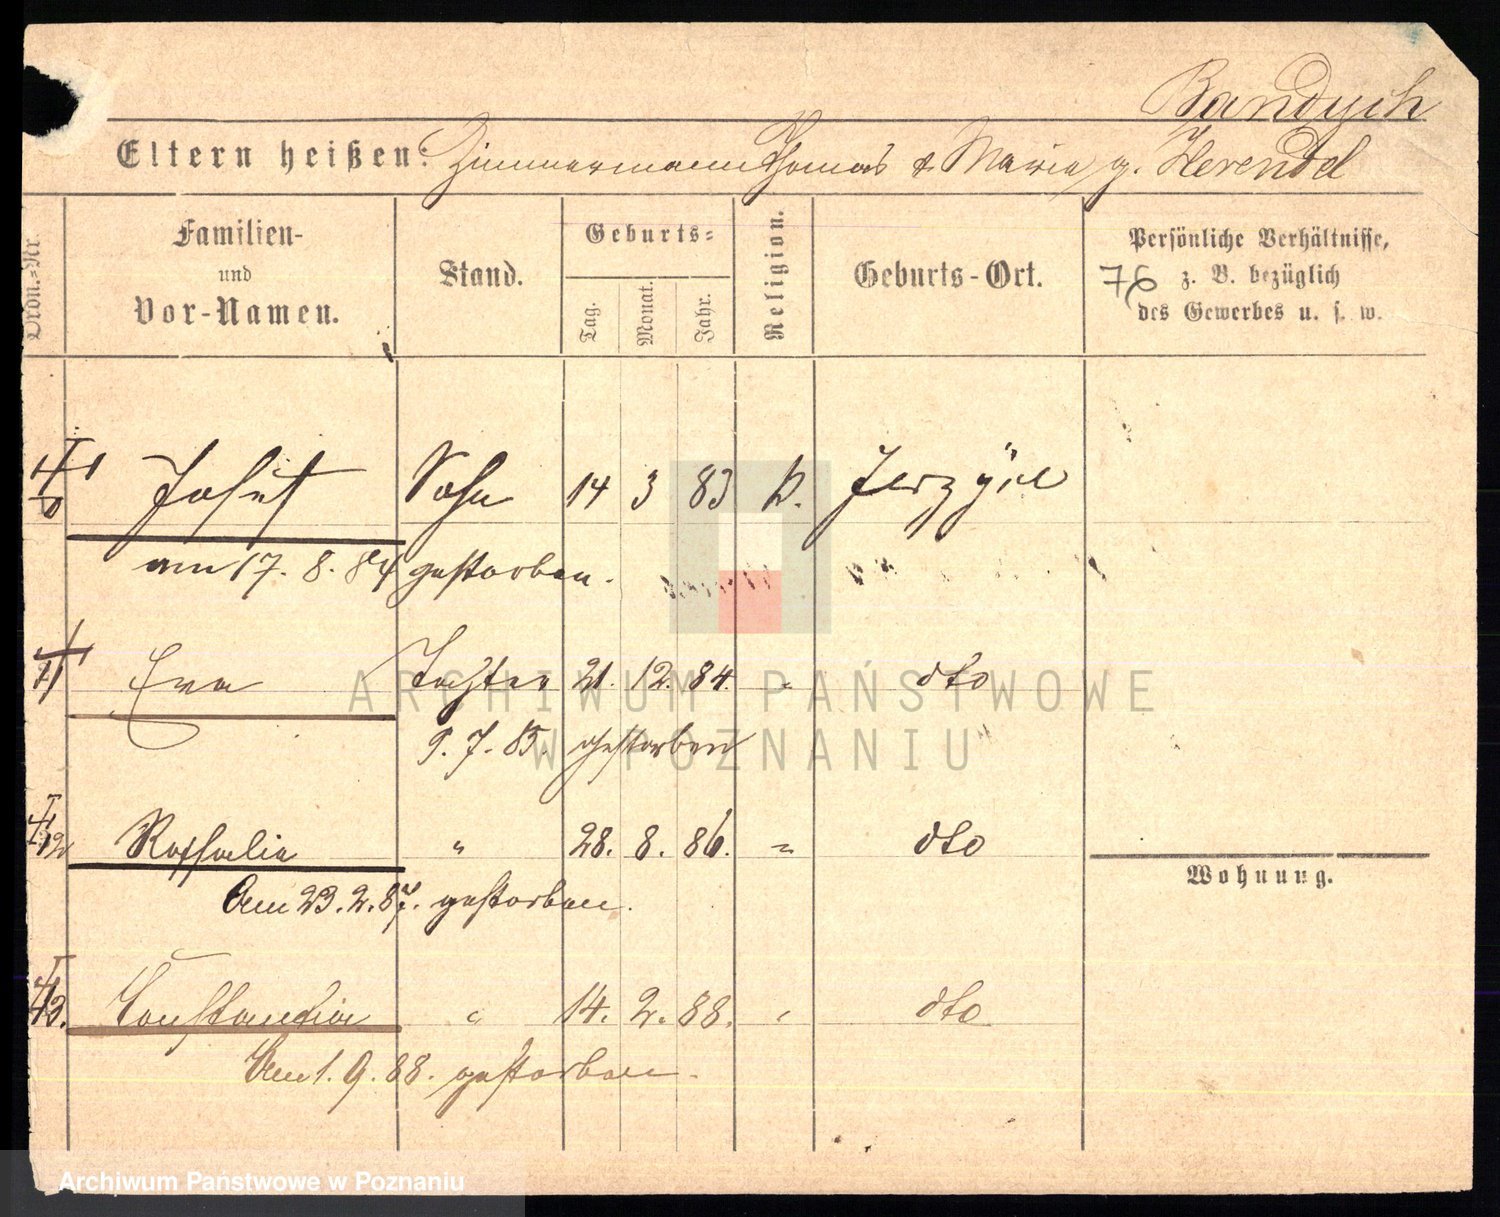 Bandych
Eltern heißen: Zimmermann Thomas & Maria g. Herendel
Ordn.=Nr.
Familien-
und
Vor-Namen.
Stand.
Geburts=
Tag.
Monat.
Jahr.
Religion.
Geburts-Ort.
Persönliche Verhältnisse,
z. B. bezüglich
des Gewerbes u. s. w.
76
Josef Sohn 14 3 83 k.
am 17. 8. 84 gestorben.
11 Eva Tochter 21. 12. 84. " dto
9. 7. 85. gestorben
12 Rosalie " 28. 8. 86. " dto
Am 23. 2. 87. gestorben.
Wohnung.
13. Constantia " 14. 2. 88. " dto
Am 1. 9. 88. gestorben.
ARCHIWUM PAŃSTWOWE
W POZNANIU
Archiwum Państwowe w Poznaniu